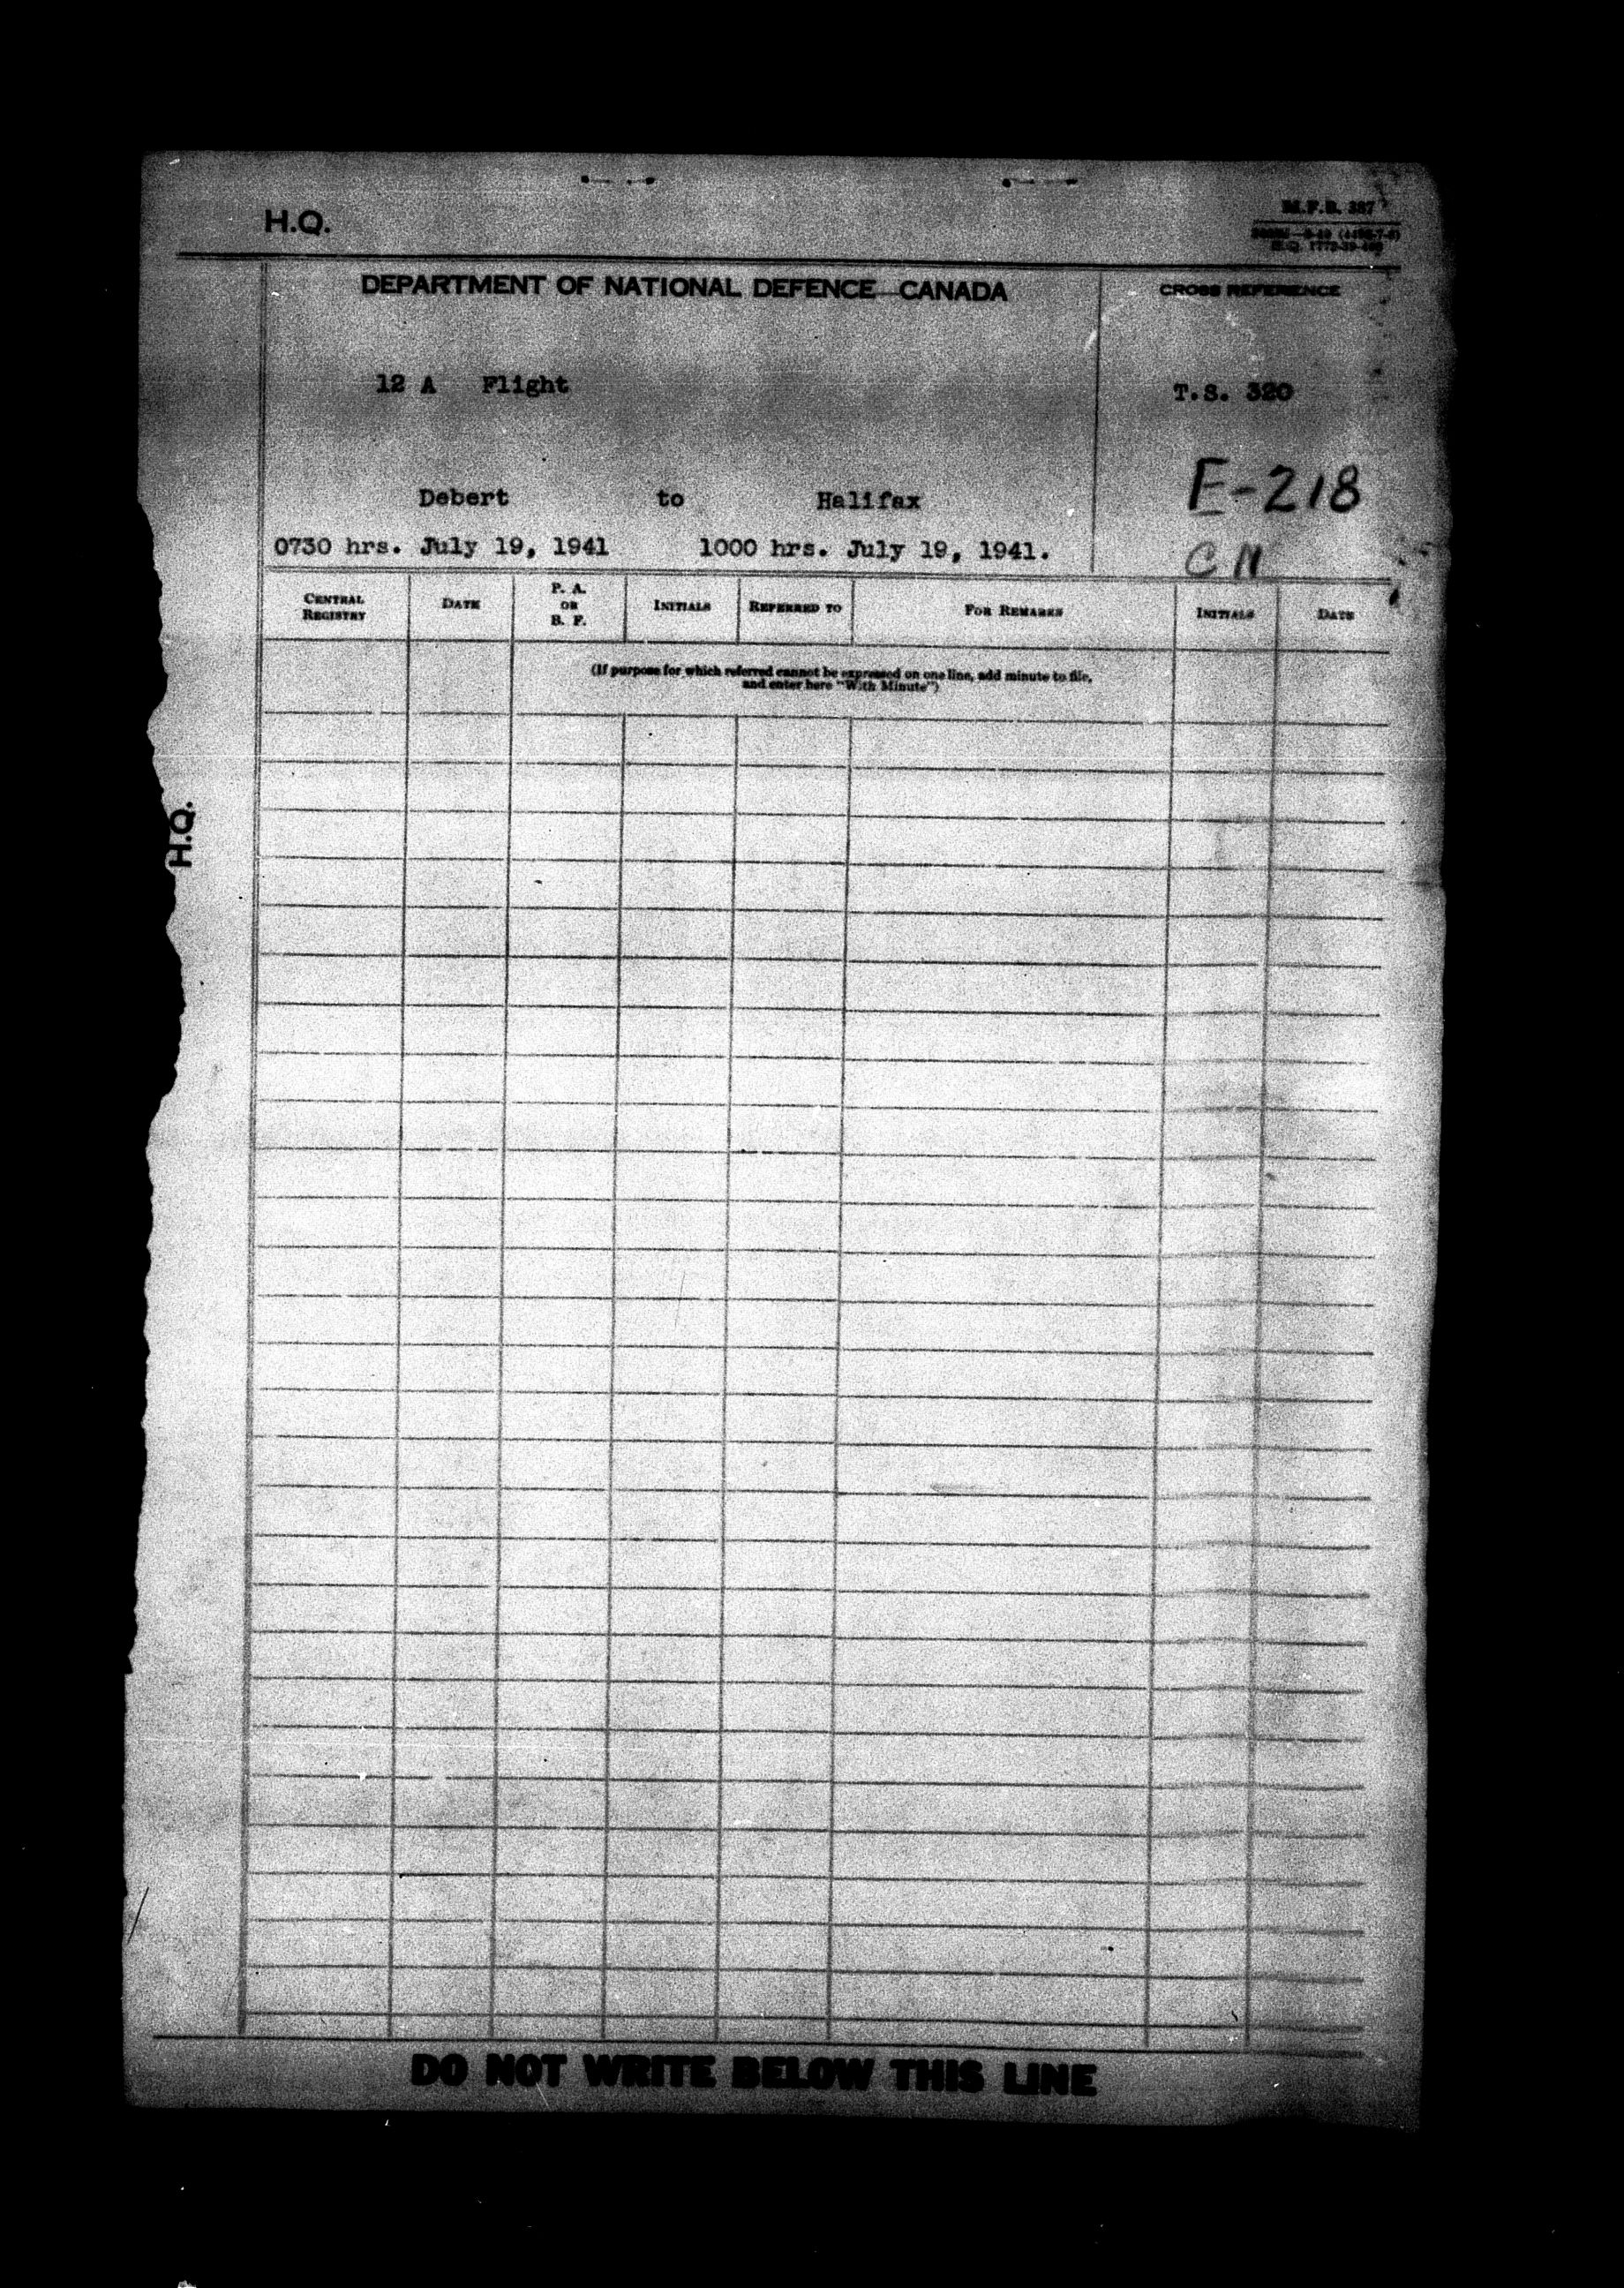 H.Q.
M.F.B. 387
DEPARTMENT OF NATIONAL DEFENCE—CANADA
CROSS REFERENCE
12 A Flight
T.S. 320
Debert to Halifax
E-218
0730 hrs. July 19, 1941 1000 hrs. July 19, 1941.
C N
CENTRAL REGISTRY
DATE
P. A. OR B. F.
INITIALS
REFERRED TO
FOR REMARKS
INITIALS
DATE
(If purpose for which referred cannot be expressed on one line, add minute to file,
and enter here "With Minute")
H.Q.
DO NOT WRITE BELOW THIS LINE